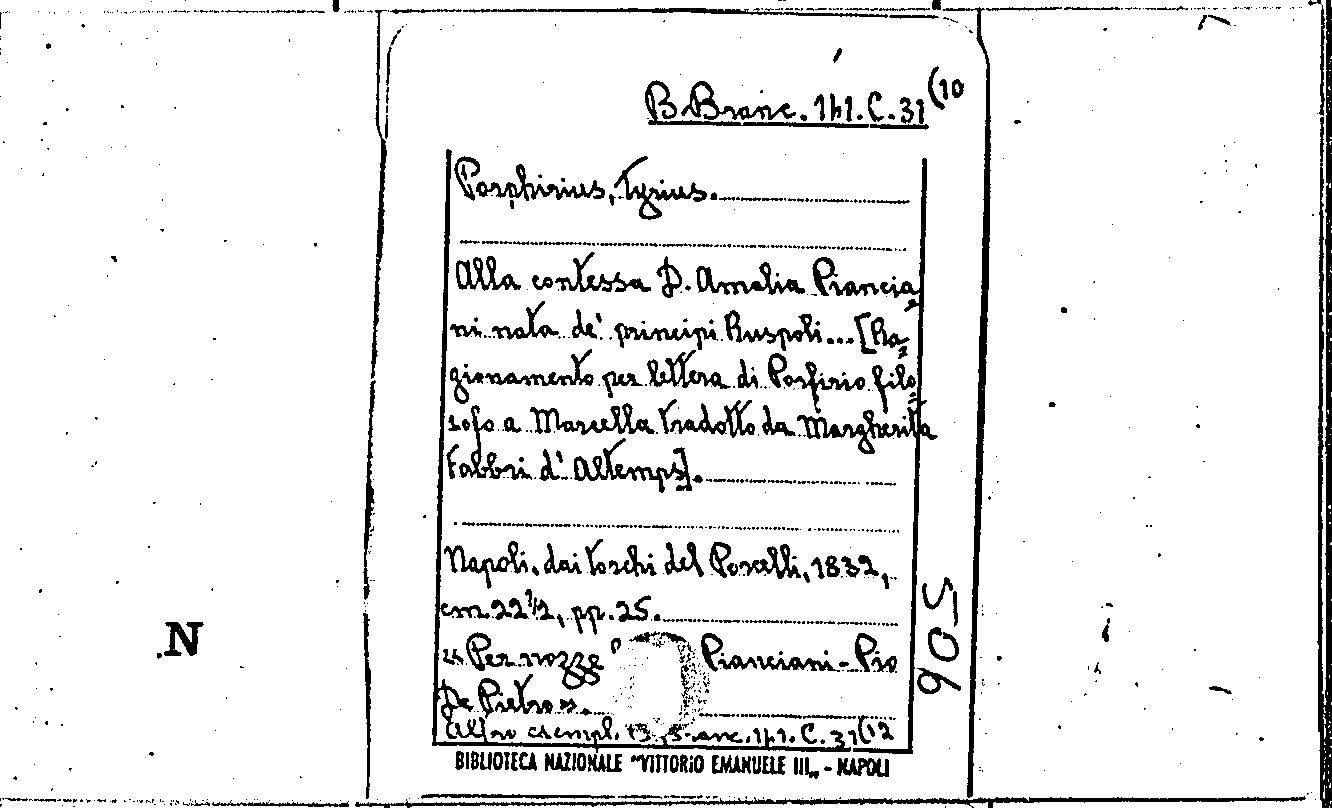 B. Branc. 141. C. 31(10
Porphirius, Tyrius.
Alla contessa D. Amalia Piancia=
ni nata de' principi Ruspoli... [Ra=
gionamento per lettera di Porfirio filo=
sofo a Marcella tradotto da Margherita
Fabbri d'Altemps].
Napoli, dai torchi del Porcelli, 1832,
cm. 22½, pp. 25.
"Per nozze Pianciani-Pio
De Pietro".
Altro esempl. B. Branc. 141. C. 31(12
BIBLIOTECA NAZIONALE "VITTORIO EMANUELE III„ - NAPOLI
N
506